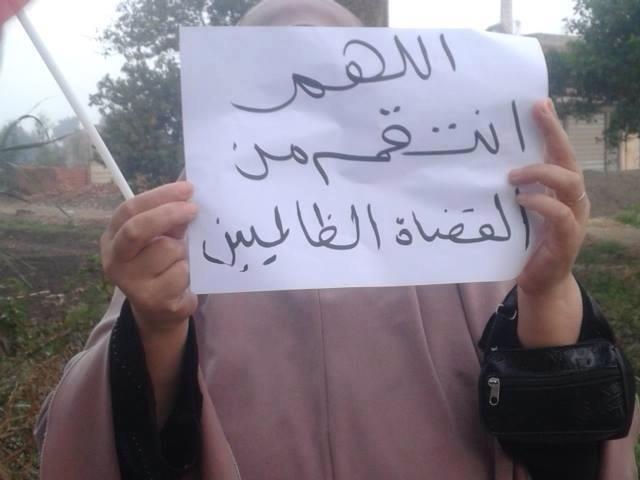 اللهم
انتقم من
القضاة الظالمين